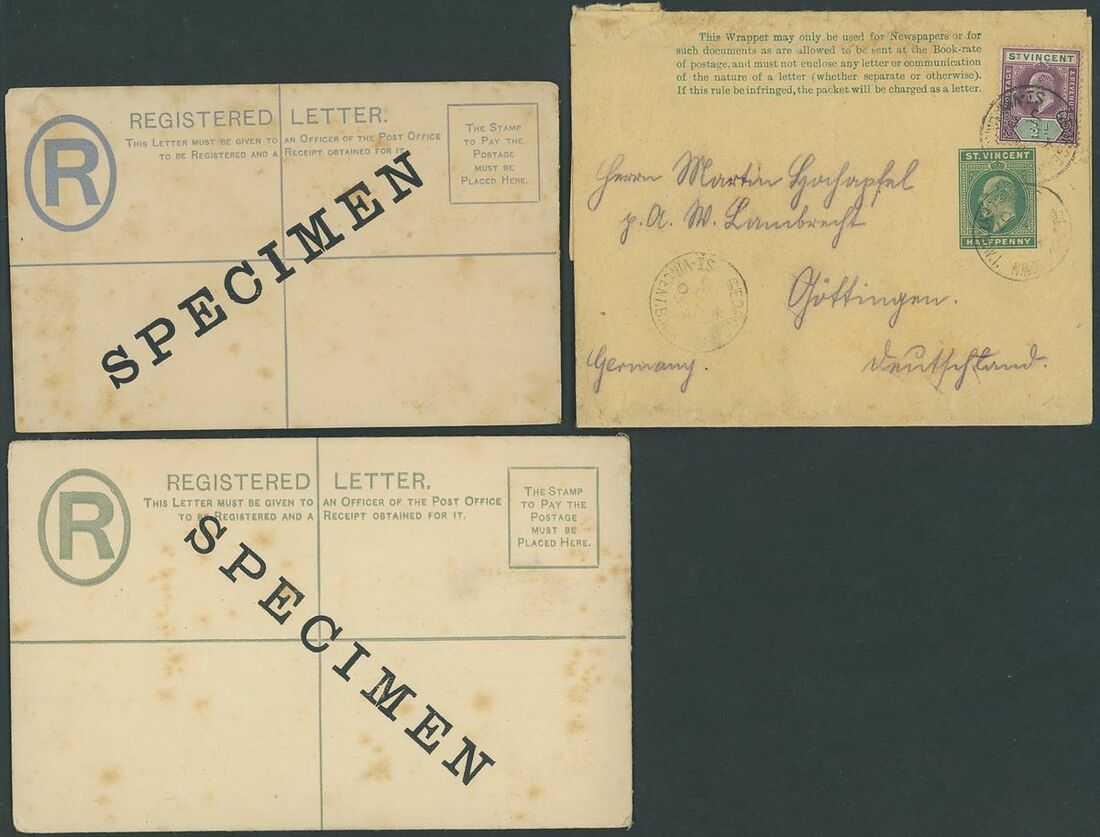 R
REGISTERED LETTER.
THIS LETTER MUST BE GIVEN TO AN OFFICER OF THE POST OFFICE
TO BE REGISTERED AND A RECEIPT OBTAINED FOR IT.
THE STAMP
TO PAY THE
POSTAGE
MUST BE
PLACED HERE.
SPECIMEN
This Wrapper may only be used for Newspapers or for
such documents as are allowed to be sent at the Book-rate
of postage, and must not enclose any letter or communication
of the nature of a letter (whether separate or otherwise).
If this rule be infringed, the packet will be charged as a letter.
ST VINCENT
POSTAGE
& REVENUE
ST. VINCENT
HALFPENNY
Herrn Martin Hochapfel
p. A. W. Lambrecht
Göttingen.
Germany. Deutschland.
ST. VINCENT
R
REGISTERED LETTER.
THIS LETTER MUST BE GIVEN TO AN OFFICER OF THE POST OFFICE
TO BE REGISTERED AND A RECEIPT OBTAINED FOR IT.
THE STAMP
TO PAY THE
POSTAGE
MUST BE
PLACED HERE.
SPECIMEN